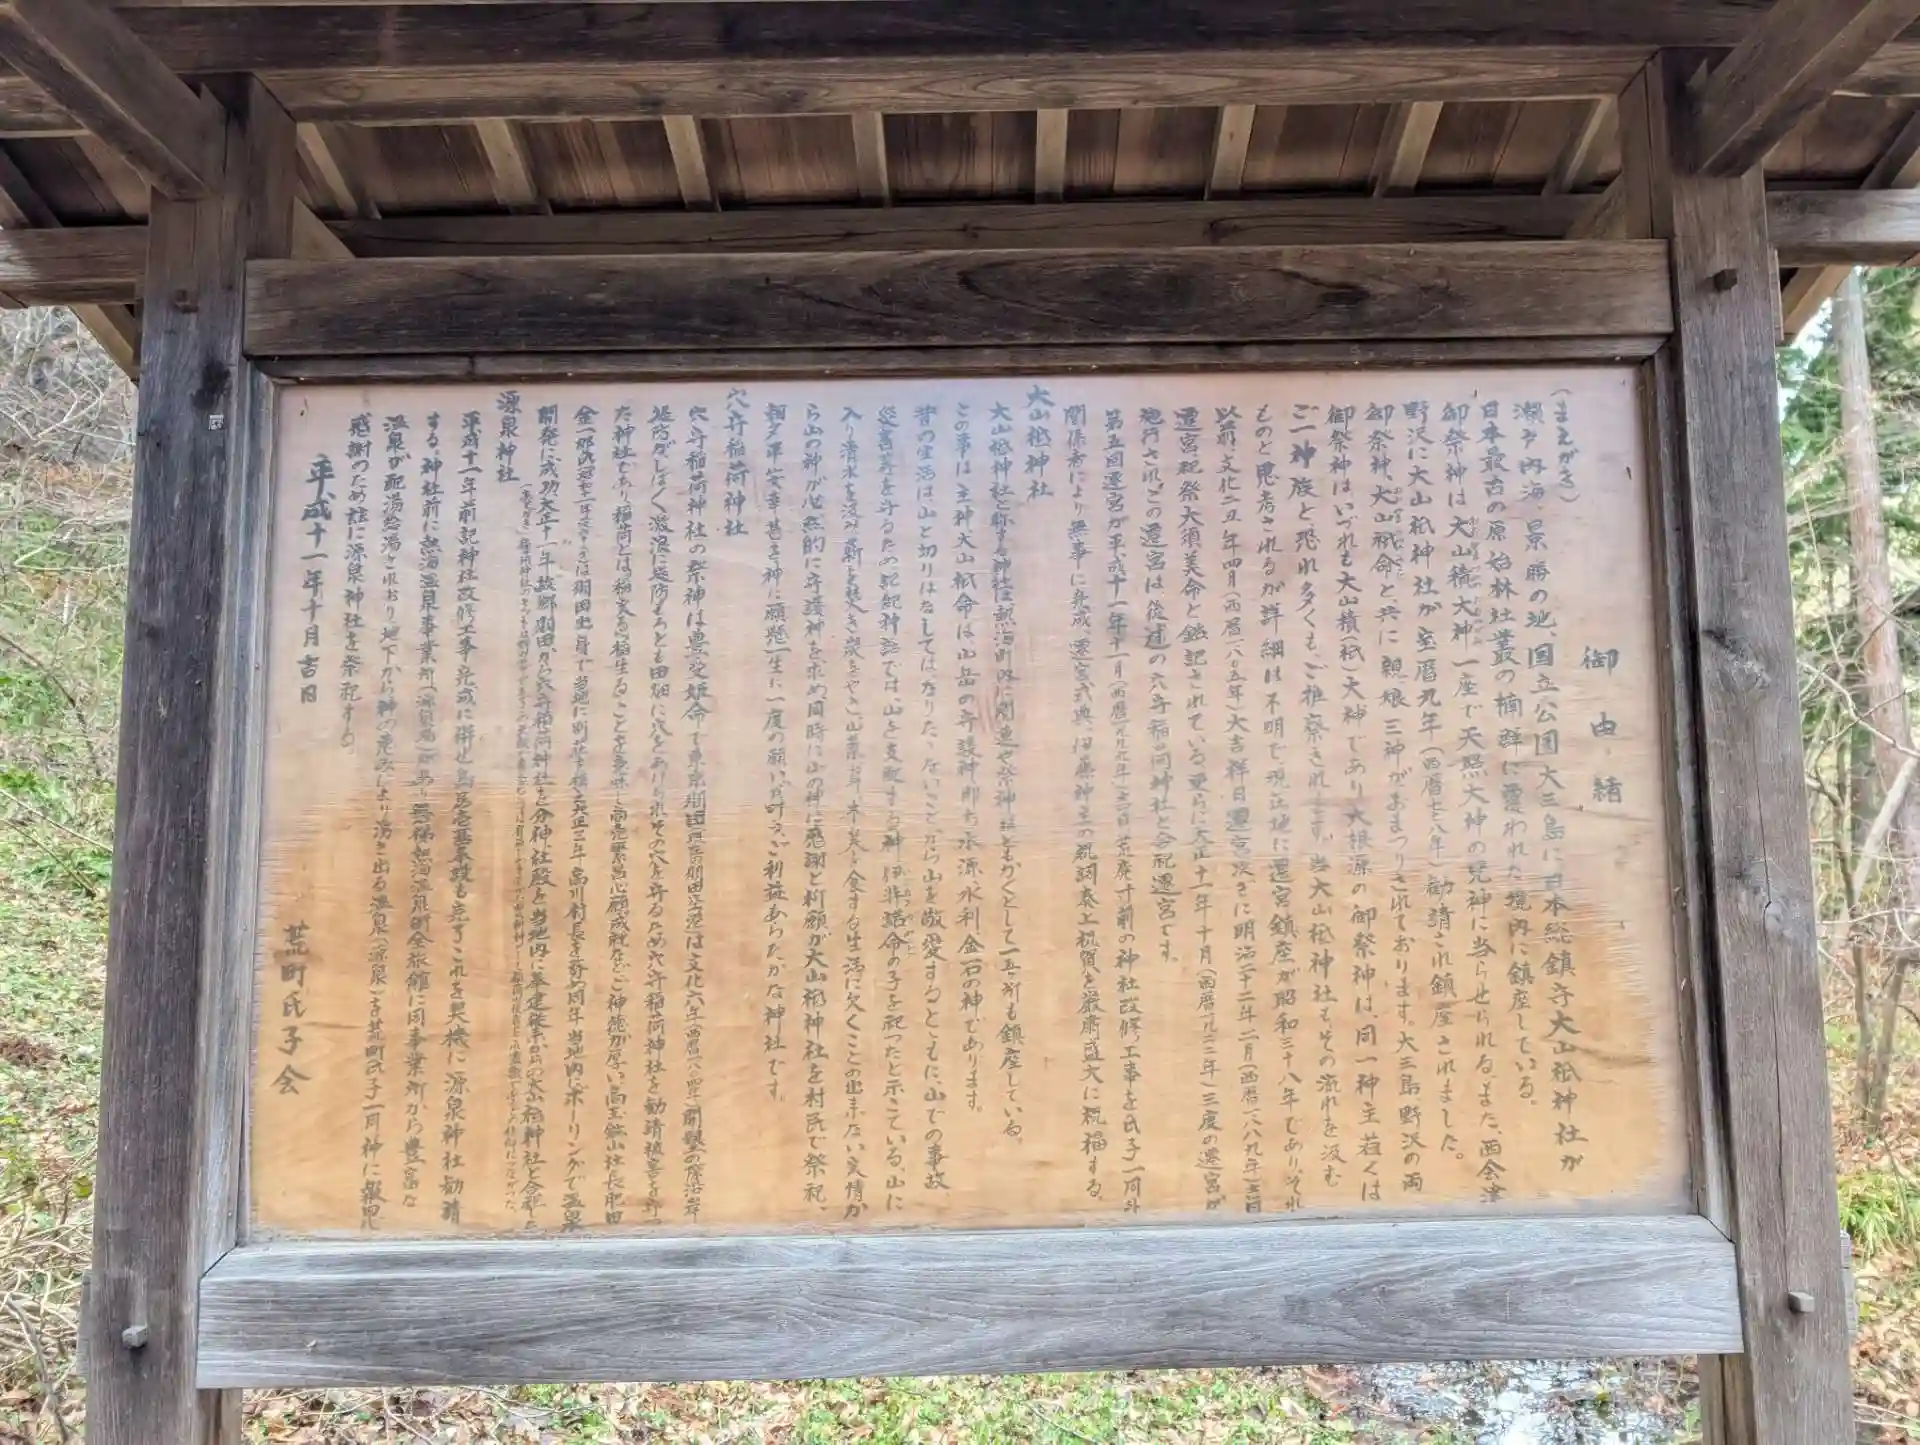 御由緒
(まえがき)
瀬戸内海、景勝の地、国立公園大三島に日本総鎮守大山祇神社が
日本最古の原始林社叢の楠群に覆われた境内に鎮座している。
御祭神は大山積大神一座で天照大神の兄神に当らせられる。また、西会津
野沢に大山祇神社が宝暦九年(西暦七八年)勧請され鎮座されました。
御祭神、大山祇命と共に親娘三神がおまつりされております。大三島野沢の両
御祭神はいづれも大山積(祇)大神であり大根源の御祭神は、同一神主若くは
ご一神族と恐れ多くも、ご推察されます。当大山祇神社もその流れを汲む
ものと思考されるが詳細は不明で現在地に遷宮鎮座が昭和三十八年でありそれ
以前、文化二丑年四月(西暦一八〇五年)大吉祥日遷宮次ぎに明治二十二年二月(西暦一八八九年)吉日
遷宮祝祭大須美命と鑑記されている。更らに大正十一年十月(西暦一九二二年)三度の遷宮が
施行されこの遷宮は、後述の穴守稲荷神社と合祀遷宮です。
第五回遷宮が平成十一年十一月(西暦一九九九年)吉日荒廃寸前の神社改修工事を氏子一同外
関係者により無事に完成、遷宮式典、伊藤神主の祝詞奏上祝賀を厳粛盛大に祝福する。
大山祇神社
大山祇神社と称する神社は熱海町内に関連や祭神は
ともかくとして一五ヶ所も鎮座している。
この事は主神大山祇命は山岳の守護神即ち水源水利金石の神であります。
昔の生活は山と切りはなしてはなりたゝないことから山を敬愛するとともに、山での事故、
災害等を守るため記紀神話では、山を支配する神伊非諾命の子を祀ったと示さている。山に
入り清水を汲み薪を
山菜
を食する生活に欠くことの出来ない実情か
ら山の神が必然的に守護神を求め同時に山の神に感謝と祈願が大山祇神社を村民で祭祀、
神に願懸一生に一度の願い
ご利益あらたかな神社です。
穴守稲荷神社
穴守稲荷神社の祭神は豊受姫命で東京
羽田空港は文化六年
開墾の際沿岸
堤防がしばしば激浪に
堤防もろとも田畑に穴をあけられその穴を守るため穴守稲荷神社を勧請
た神社であり稲荷とは
稲生ることを意味し商売繁昌心願成就などご神徳が厚い高玉鉱山社長肥田
金一郎氏
は羽田出身で当地に別荘を構え大正三年高川村長を
同年当地内にボーリングで温泉
開発に成功大正十一年故郷羽田から穴守稲荷神社を分神、社殿を当地内に奉建
の大山祇神社と合祀した
源泉神社
平成十一年前記神社改修工事の完成に併せ鳥居壱基奉設も完了これを契機に源泉神社勧請
する。神社前に熱海温泉事業所(源泉湯)があり
温泉町全旅館に同事業所から豊富な
温泉が配湯給湯されおり地下から神の恵みにより湧き出る温泉(源泉)を荒町氏子一同神に報恩
感謝のため茲に源泉神社を祭祀する。
平成十一年十月吉日
荒町氏子会